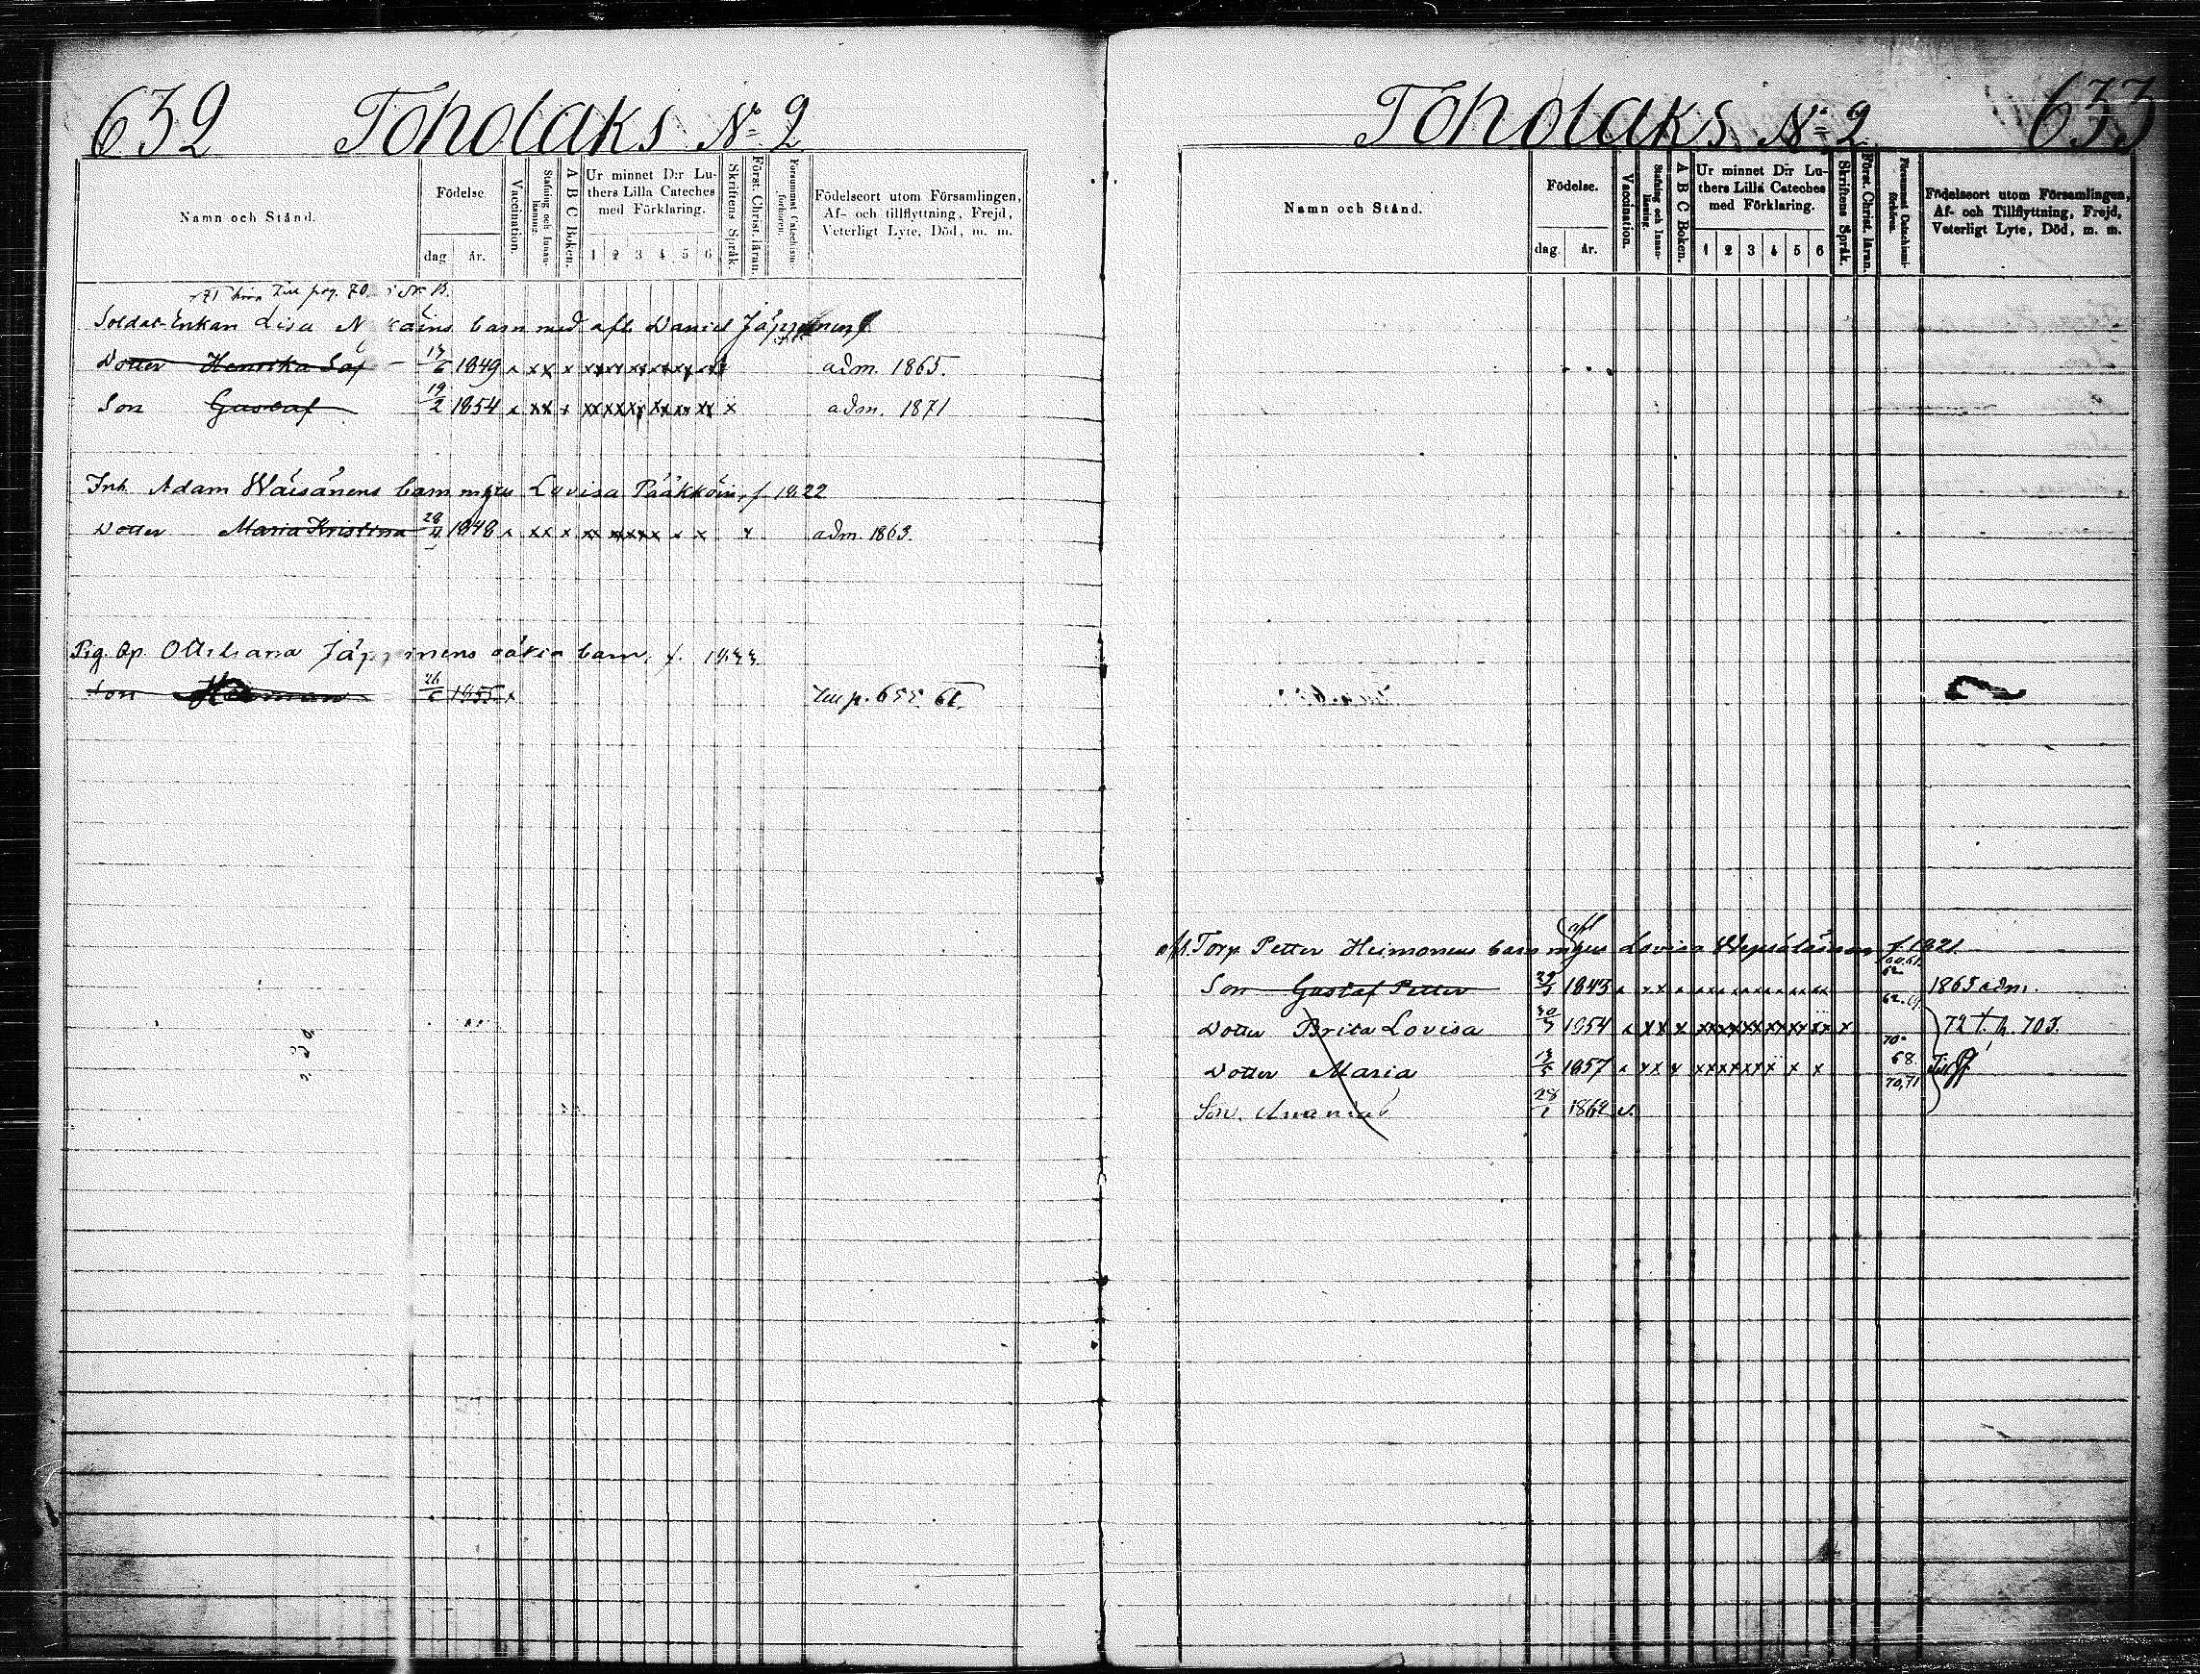 632 Toholaks No 2
Namn och Stånd.
Födelse.
dag
år.
Vaccination.
Stafning och Innanläsning.
A B C Boken.
Ur minnet D:r Luthers Lilla Cateches med Förklaring.
1 2 3 4 5 6
Skriftens Språk.
Först. Christ. läran.
Försummat Catechismiförhören.
Födelseort utom Församlingen,
Af- och tillflyttning, Frejd,
Veterligt Lyte, Död, m. m.
Till pag. 70
Soldat-Enkan Lisa barn med afl. Daniel Jäppinen
Dotter Henrika 17/6 1849 x xx x adm. 1865.
Son Gustaf 19/2 1854 x xx x adm. 1871
Inh. Adam Wäisänens barn m/gen Lovisa Pääkköin, f. 1822
Dotter Maria Kristina 28/11 1848 x xx x adm. 1863.
Pig. Op. Jäppinens oäkta barn, f.
Son Herman 26/6 1855 x Till p. 655
Toholaks No 2 633
Namn och Stånd.
Födelse.
dag
år.
Vaccination.
Stafning och Innanläsning
A B C Boken.
Ur minnet D:r Luthers Lilla Cateches med Förklaring.
1 2 3 4 5 6
Skriftens Språk.
Först. Christ. läran.
Försummat Catechismiförhören.
Födelseort utom Församlingen,
Af- och Tillflyttning, Frejd,
Veterligt Lyte, Död, m. m.
afl
afl. Torp. Petter Heimonens barn m/gen Lovisa f. 1821.
Son Gustaf Petter 1843 x xx x 62 1865 adm.
Dotter Brita Lovisa 1854 x xx x 72 703.
Dotter Maria 1857 x xx x 68 70,71
Son. Ananias 28/1 1862 v.